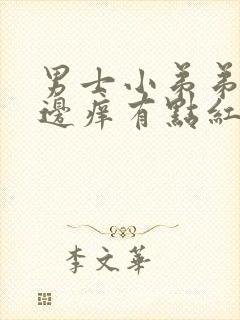 男士小弟弟
邊痒有點紅
李文華